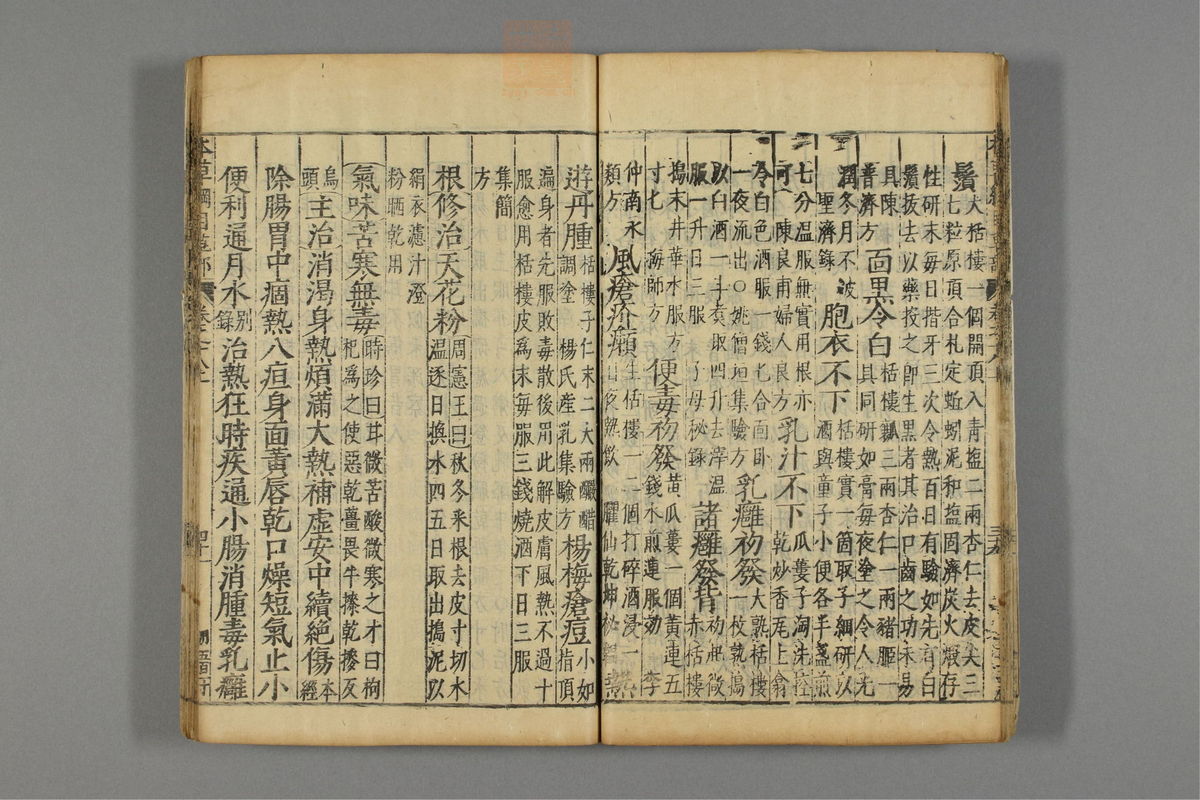 鬚 大栝樓一個開頂入青塩二兩杏仁去皮尖三
七粒原頂合札定蚯蚓泥和塩固濟炭火煅存
性研末每日揩牙三次令熱百日有驗如先有白
鬚拔去以藥投之即生黑者其治口齒之功未易
具陳
普濟方 面黑令白 栝樓瓤三兩杏仁一兩豬胰一
具同研如膏每夜塗之令人光
潤冬月不皴
聖濟錄 胞衣不下 栝樓實一箇取子細研以
酒與童子小便各半盞煎
七分溫服無實用根亦
可 陳良甫婦人良方 乳汁不下 瓜蔞子淘洗控
乾炒香瓦上翕
令白色酒服一錢匕合面臥
一夜流出○姚僧垣集驗方 乳癰初發 大熟栝樓
一枚熟搗
以白酒一斗煮取四升去滓溫
服一升日三服 子母秘錄 諸癰發背 初起微
赤栝樓
搗末井華水服方
寸匕 梅師方 便毒初發 黃瓜蔞一個黃連五
錢水煎連服効 李
仲南永
類方 風瘡疥癩 生栝樓一二個打碎酒浸一
日夜熱飲 臞仙乾坤秘韞 熱
遊丹腫 栝樓子仁末二大兩釅醋
調塗 楊氏産乳集驗方 楊梅瘡痘 小如
指頂
遍身者先服敗毒散後用此解皮膚風熱不過十
服愈用栝樓皮爲末每服三錢燒酒下日三服
集簡
方
根 修治 天花粉 周憲王曰秋冬采根去皮寸切水
溫逐日換水四五日取出搗泥以
絹衣濾汁澄
粉晒乾用
氣味 苦寒無毒 時珍曰甘微苦酸微寒之才曰枸
杞爲之使惡乾薑畏牛膝乾漆反
烏
頭 主治 消渴身熱煩滿大熱補虛安中續絕傷 本
經
除腸胃中痼熱八疸身面黃唇乾口燥短氣止小
便利通月水 別
錄 治熱狂時疾通小腸消腫毒乳癰